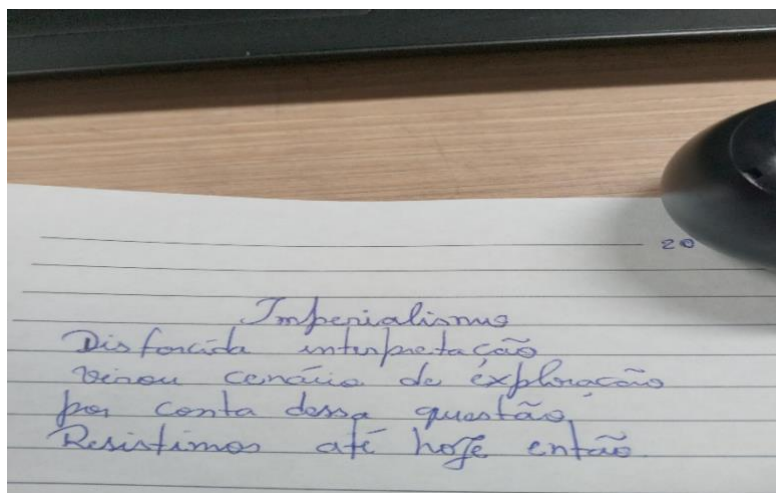 20
Imperialismo
Distorcida interpretação
virou cenário de exploração
por conta dessa questão,
Resistimos até hoje então